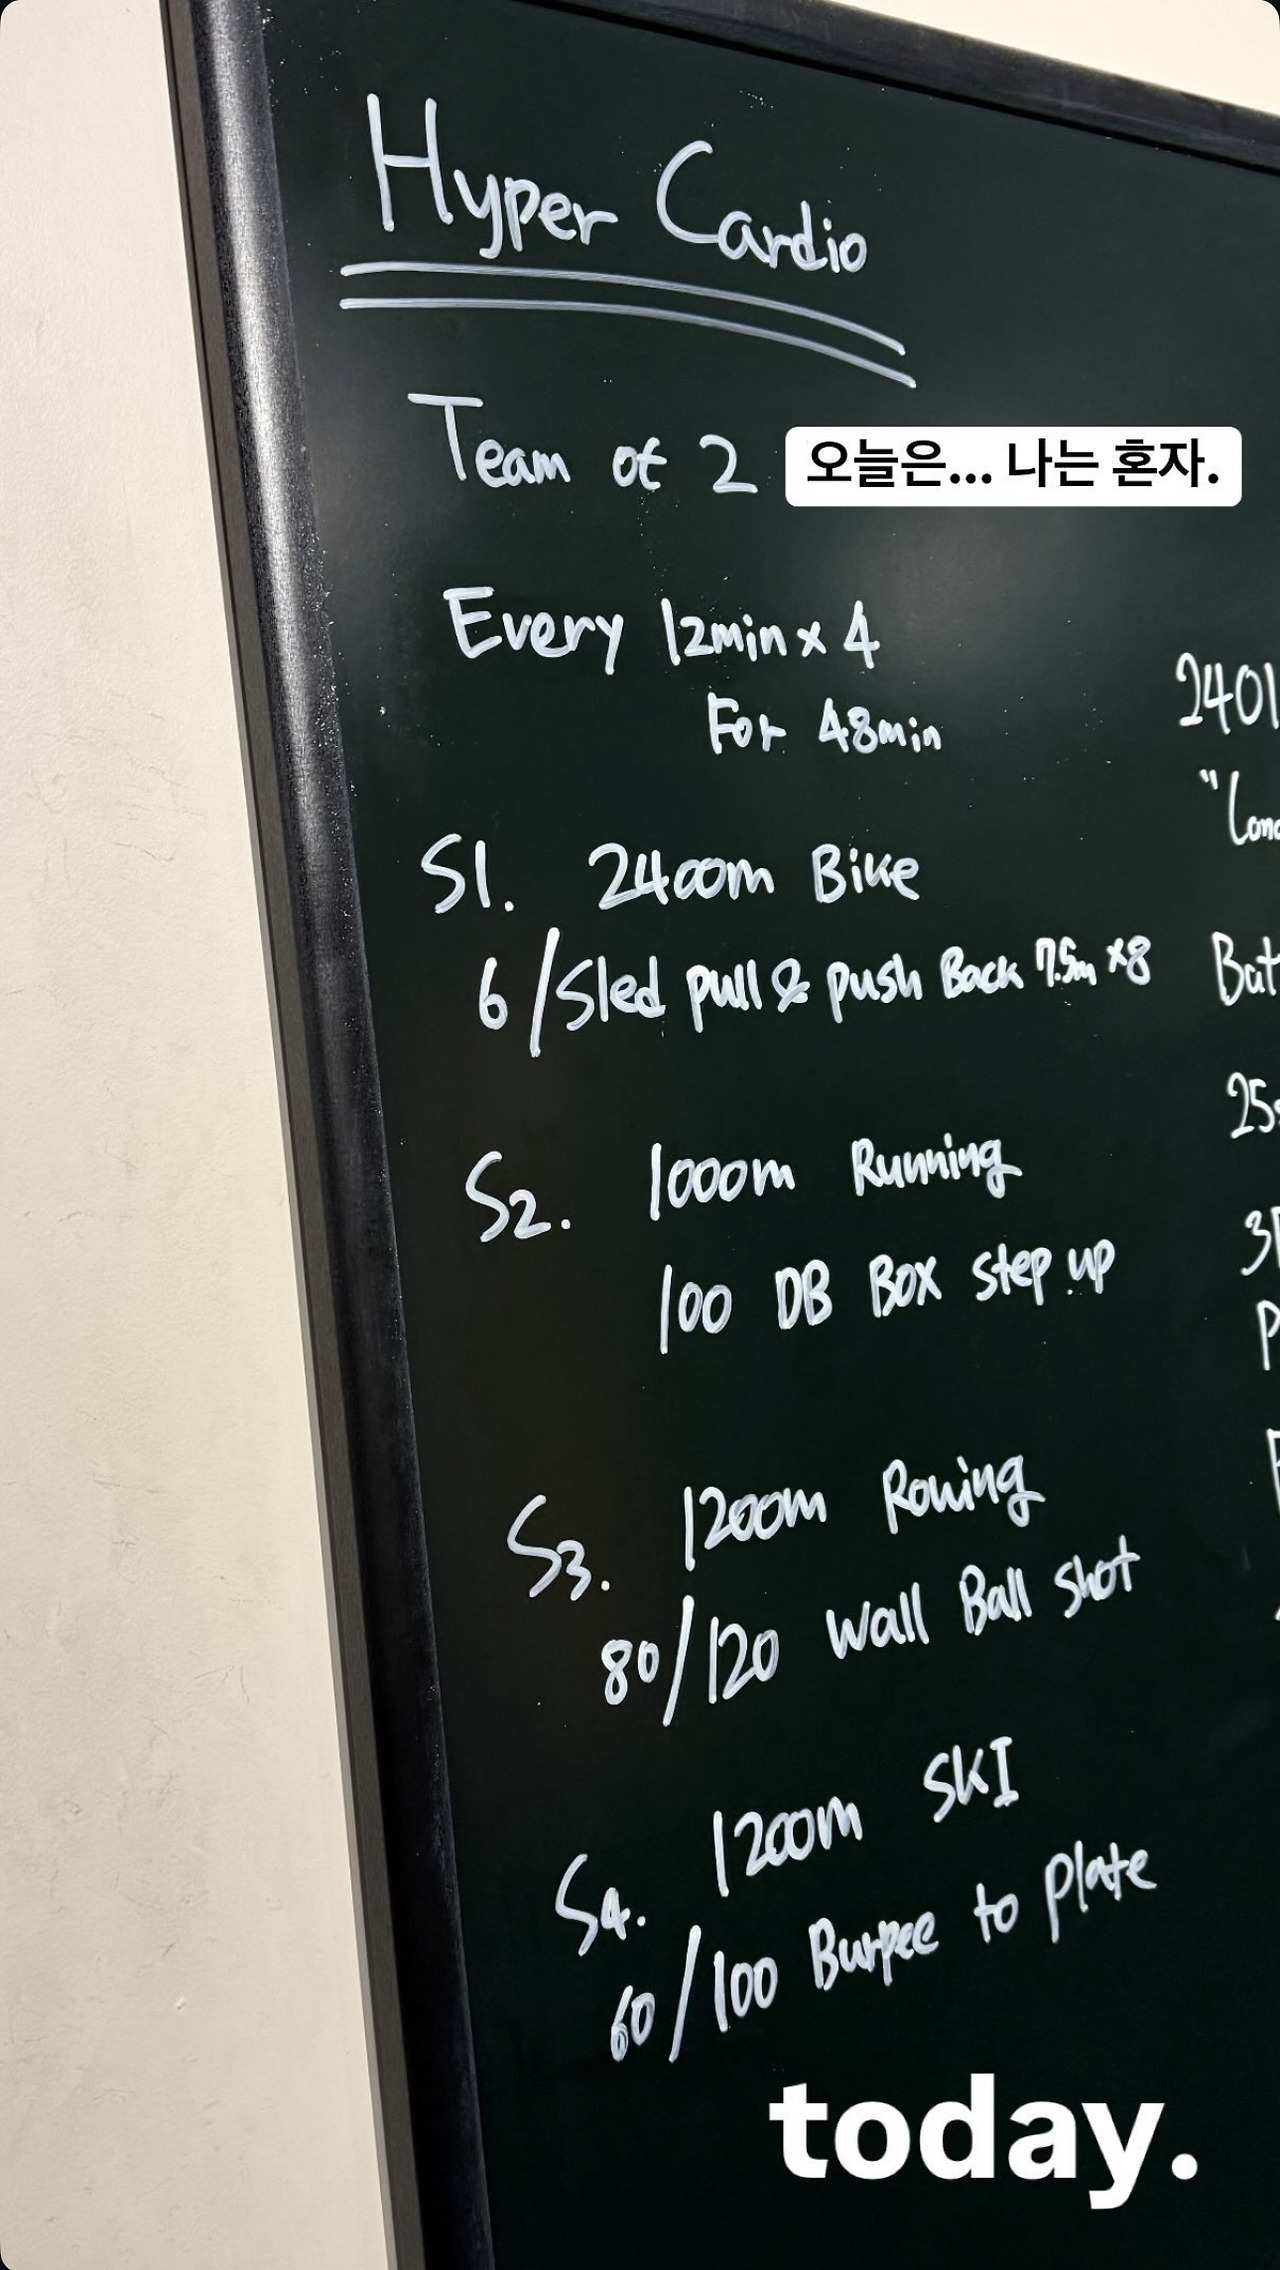 Hyper Cardio
Team of 2
오늘은... 나는 혼자.
Every 12min x 4
For 48min
S1. 2400m Bike
6/Sled pull & push Back 7.5m x8
S2. 1000m Running
100 DB Box step up
S3. 1200m Rowing
80/120 Wall Ball shot
S4. 1200m SKI
60/100 Burpee to Plate
today.